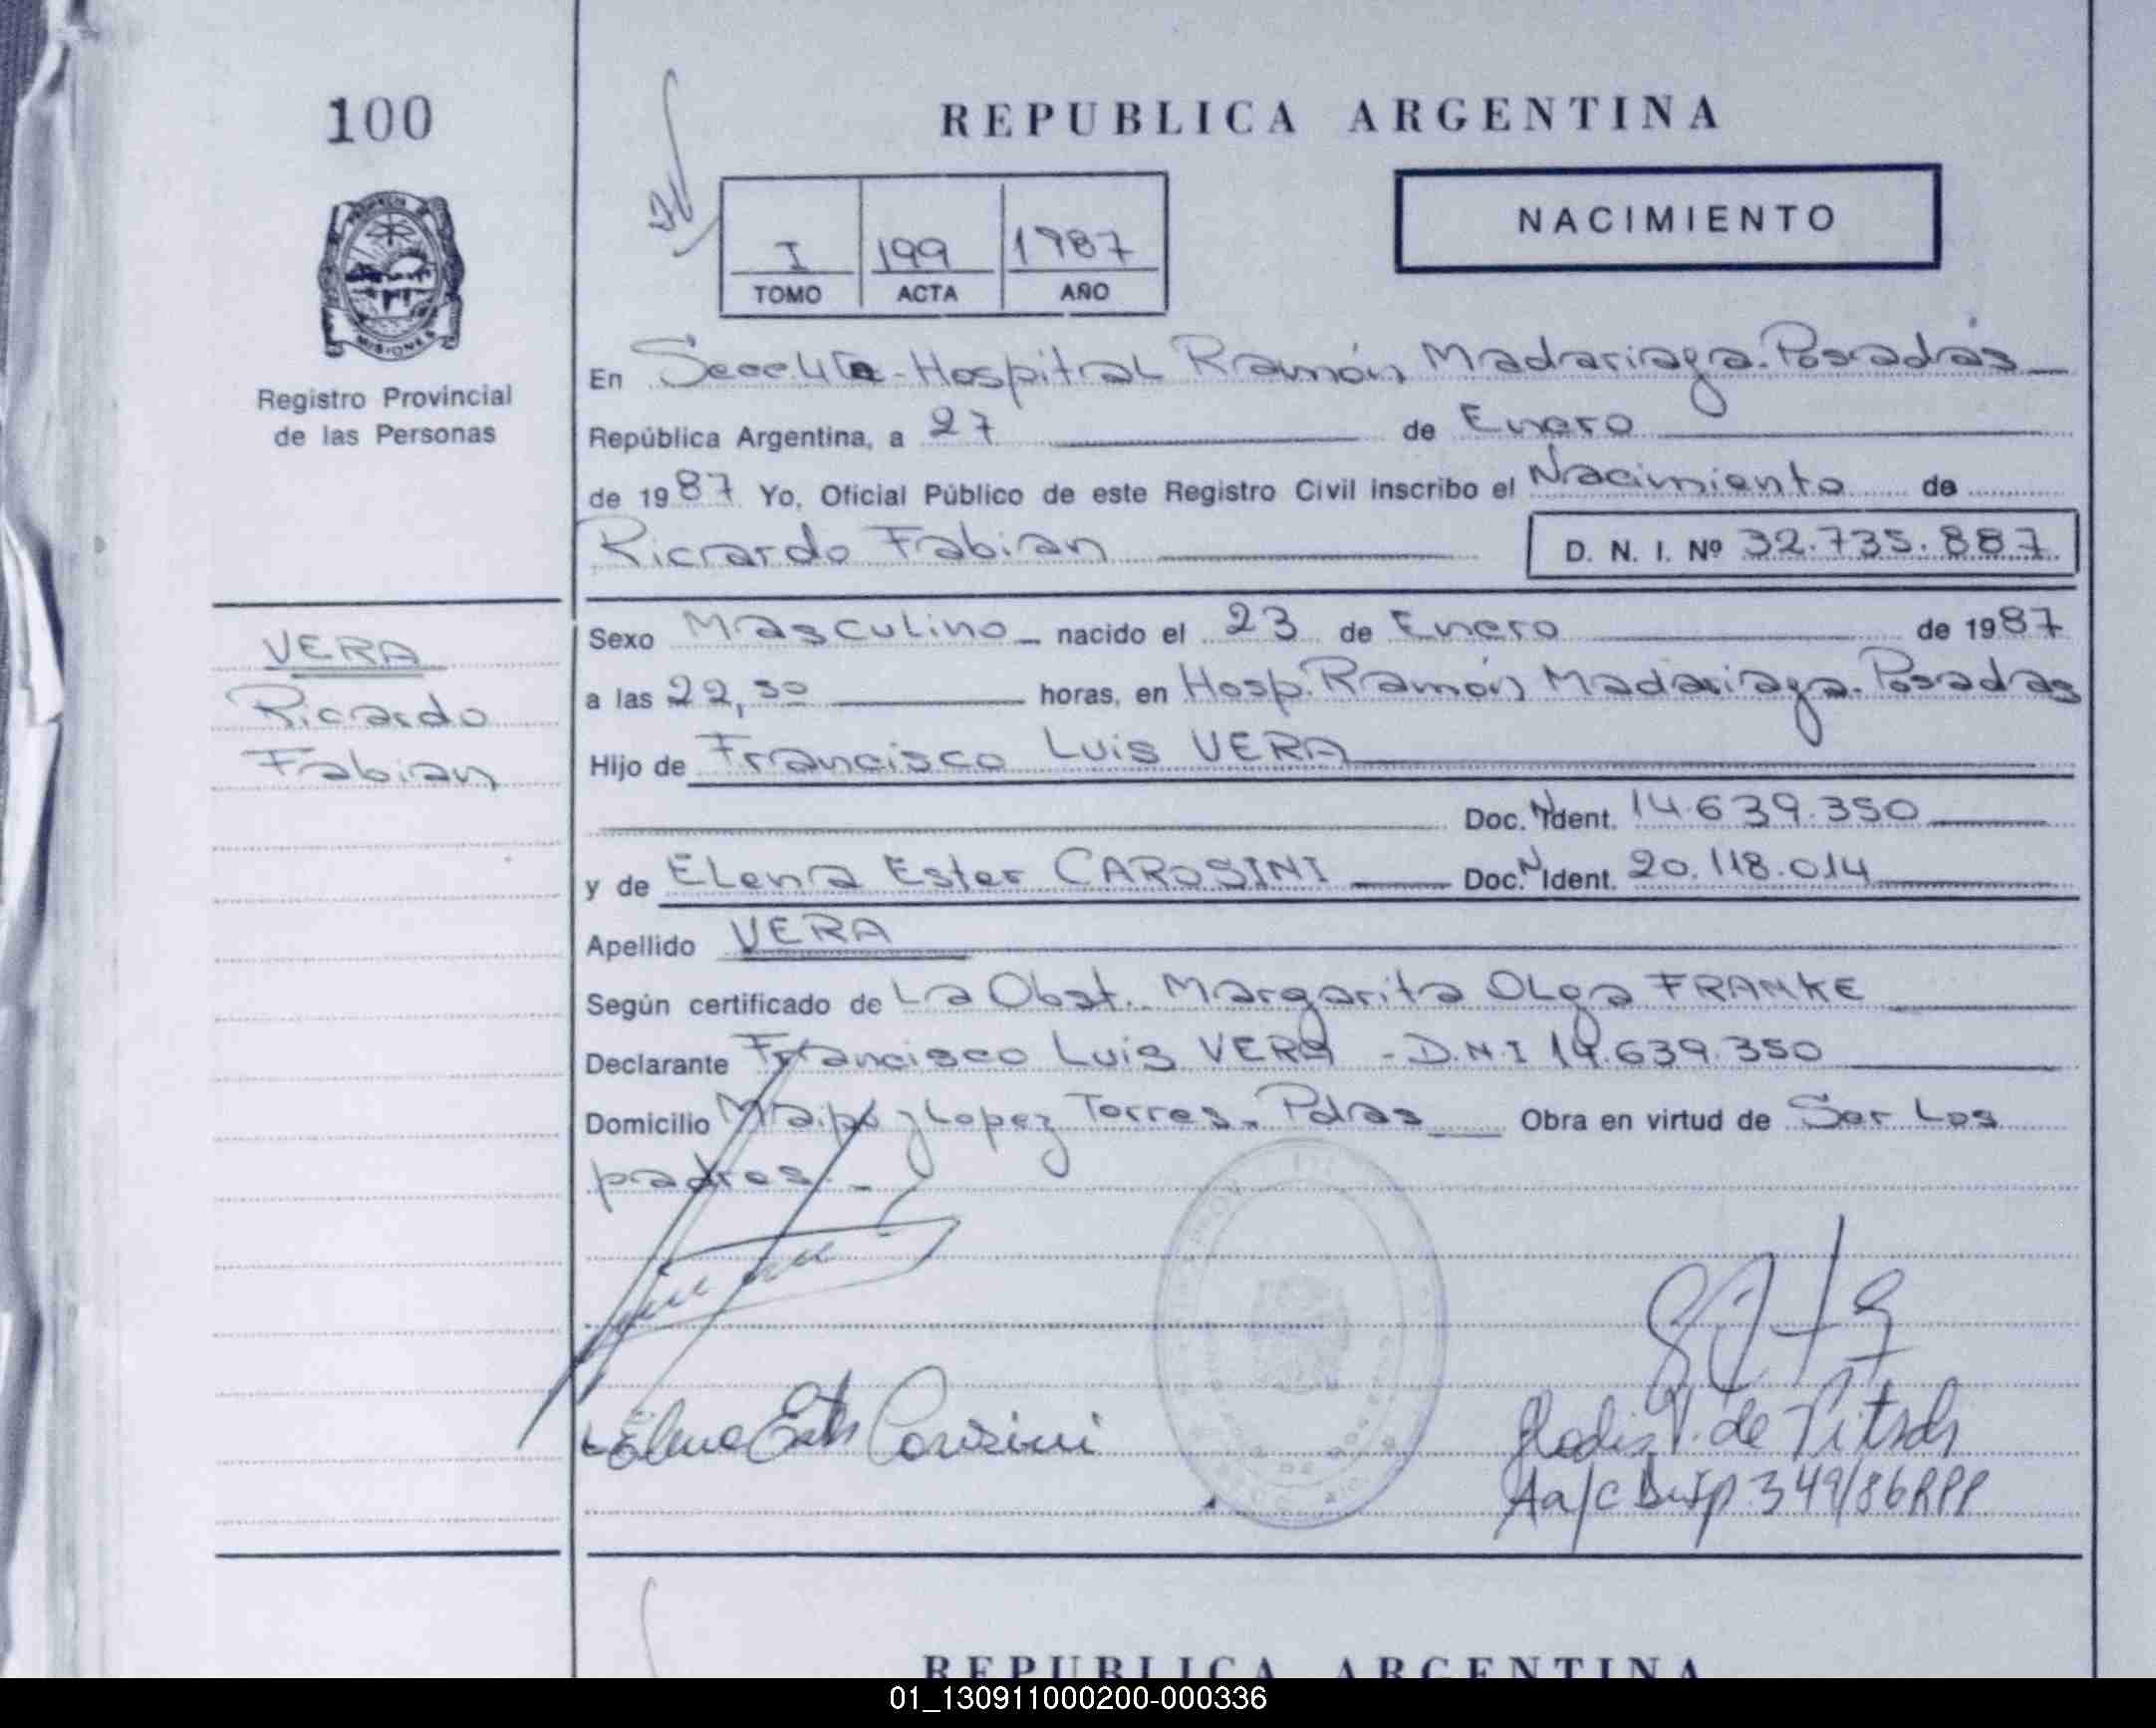 100
REPUBLICA ARGENTINA
NACIMIENTO
I 199 1987
TOMO ACTA AÑO
MISIONES
Registro Provincial
de las Personas
En Secc. 4ta - Hospital Ramón Madariaga. Posadas
República Argentina, a 27 de Enero
de 1987 Yo, Oficial Público de este Registro Civil inscribo el Nacimiento de
Ricardo Fabian D. N. I. Nº 32.735.887
VERA
Ricardo
Fabian
Sexo Masculino nacido el 23 de Enero de 1987
a las 22,30 horas, en Hosp. Ramón Madariaga. Posadas
Hijo de Francisco Luis VERA
Doc. N Ident. 14.639.350
y de Elena Ester CAROSINI Doc. N Ident. 20.118.014
Apellido VERA
Según certificado de La Obst. Margarita Olga FRANKE
Declarante Francisco Luis VERA - D.N.I 14.639.350
Domicilio Maipú y Lopez Torres. Pdas Obra en virtud de Ser Los
padres.-
Elena Ester Carosini
de
A a/c Disp 349/86 RPP
REPUBLICA ARGENTINA
01_130911000200-000336